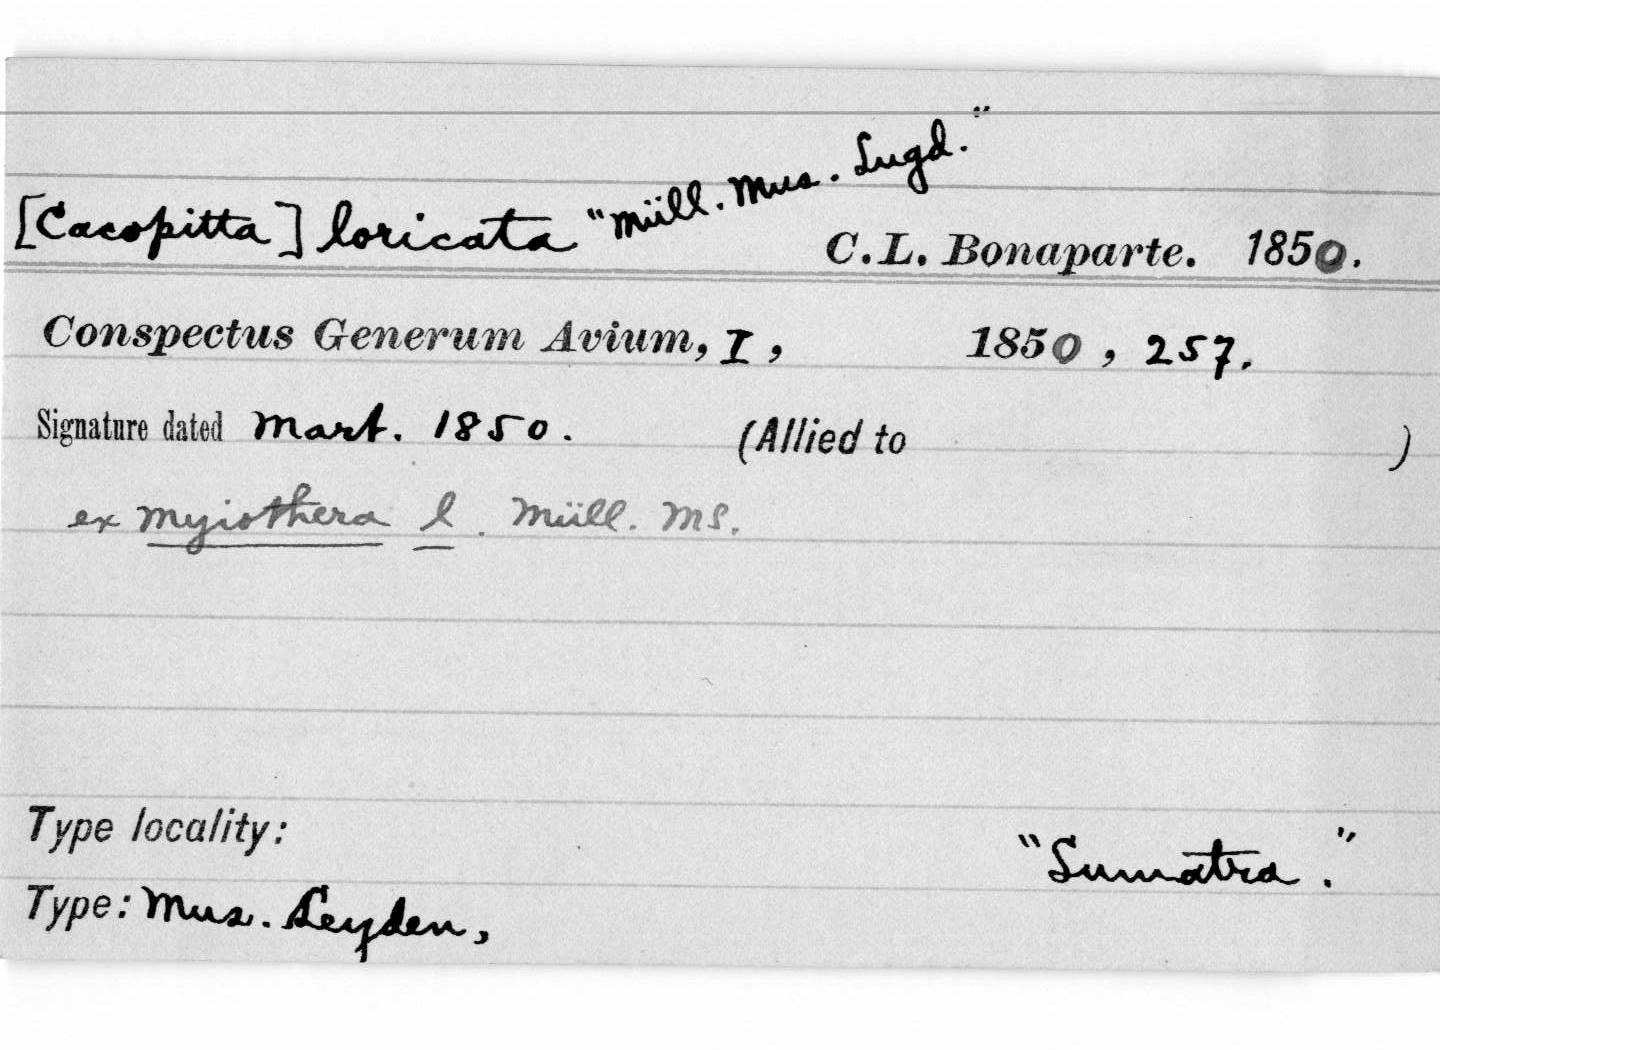 [Cacopitta] loricata "Müll. Mus. Lugd."
C.L. Bonaparte. 1850.
Conspectus Generum Avium, I, 1850, 257.
Signature dated Mart. 1850. (Allied to )
ex Myiothera l. Müll. MS.
Type locality: "Sumatra."
Type: Mus. Leyden,